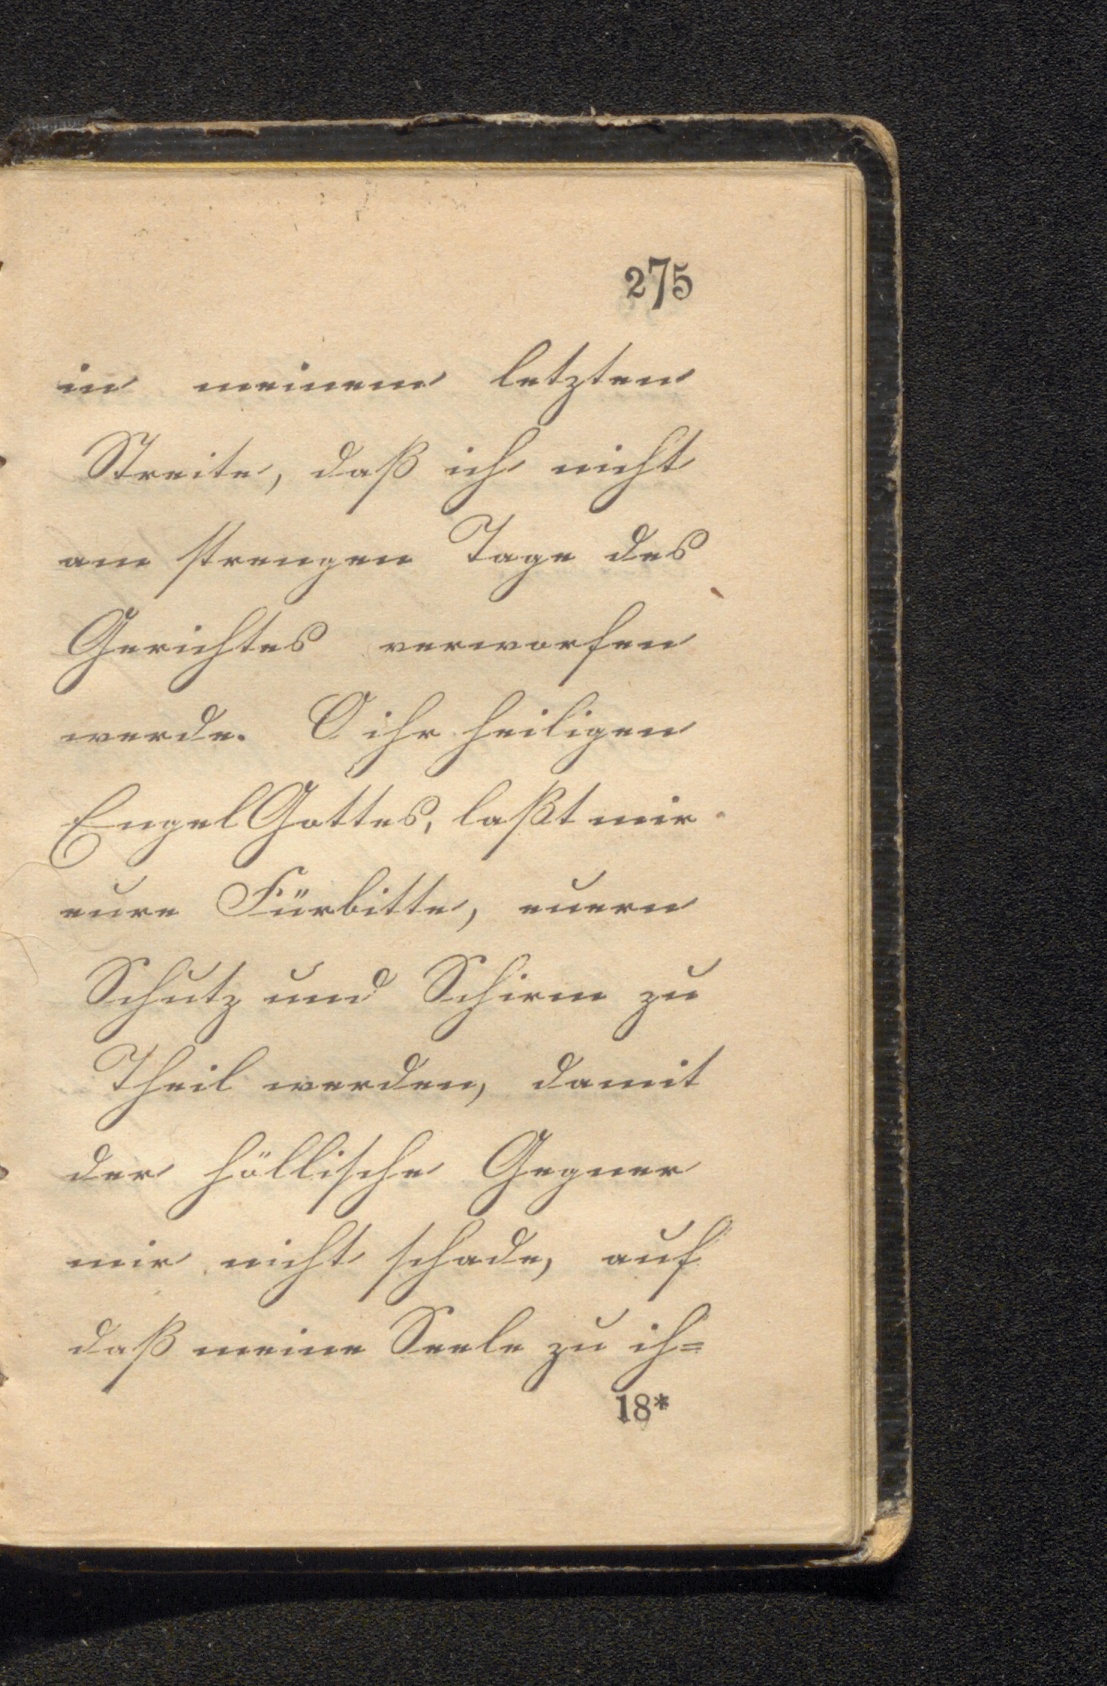 275
in meinem letzten
Streite, daß ich nicht
am strengen Tage des
Gerichtes verworfen
werde. O ihr heiligen
Engel Gottes, laßt mir
eure Fürbitte, euern
Schutz und Schirm zu
Theil werden, damit
der höllische Gegner
mir nicht schade, auf
daß meine Seele zu ih=
18*